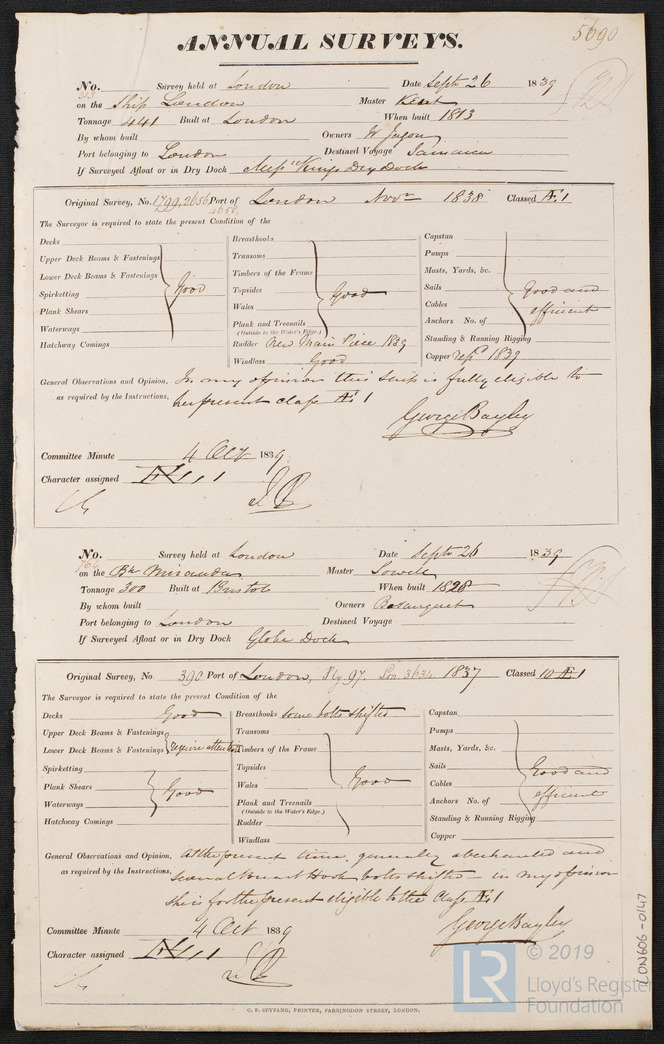 5690
ANNUAL SURVEYS.
No. 313 Survey held at London Date Septr 26 1839
on the Ship London Master Kent
Tonnage 441 Built at London When built 1813
By whom built Owners W Jagon
Port belonging to London Destined Voyage Jamaica
If Surveyed Afloat or in Dry Dock Dry Dock
Original Survey, No. 1799, 2656 Port of London Novr 1838 Classed Æ 1
The Surveyor is required to state the present Condition of the
Decks
Upper Deck Beams & Fastenings
Lower Deck Beams & Fastenings
Spirketting
Plank Shears
Waterways
Hatchway Comings
Good
Breasthooks
Transoms
Timbers of the Frame
Topsides
Wales
Plank and Treenails
(Outside to the Water's Edge.)
Good
Rudder New Main Piece 1839
Windlass Good
Capstan
Pumps
Masts, Yards, &c.
Sails
Cables
Anchors No. of
Standing & Running Rigging
Good and
efficient
Copper repd 1839
General Observations and Opinion, In my opinion this Ship is fully eligible to
as required by the Instructions, her present class Æ 1
George Bayley
Committee Minute 4 Oct 1839
Character assigned Æ 1
No. Survey held at London Date Septr 26 1839
on the Bk Miranda Master Sowell
Tonnage 300 Built at Bristol When built 1828
By whom built Owners Bosanquet
Port belonging to London Destined Voyage
If Surveyed Afloat or in Dry Dock Globe Dock
Original Survey, No. 390 Port of London, Ply 97. Lon. 3634 1837 Classed 10 Æ 1
The Surveyor is required to state the present Condition of the
Decks Good
Upper Deck Beams & Fastenings
Lower Deck Beams & Fastenings
require attention
Spirketting
Plank Shears
Waterways
Hatchway Comings
Good
Breasthooks some bolts shifted
Transoms
Timbers of the Frame
Topsides
Wales
Plank and Treenails
(Outside to the Water's Edge.)
Rudder
Windlass
Good
Capstan
Pumps
Masts, Yards, &c.
Sails
Cables
Anchors No. of
Standing & Running Rigging
Copper
Good and
efficient
General Observations and Opinion, At the present time, generally overhauled and
as required by the Instructions, several Breast Hook bolts shifted – in my opinion
she is for the present eligible to the Class Æ 1
George Bayley
Committee Minute 4 Oct 1839
Character assigned Æ 1
C. F. SEYFANG, PRINTER, FARRINGDON STREET, LONDON.
LON606-0147
LR
© 2019
Lloyd's Register
Foundation